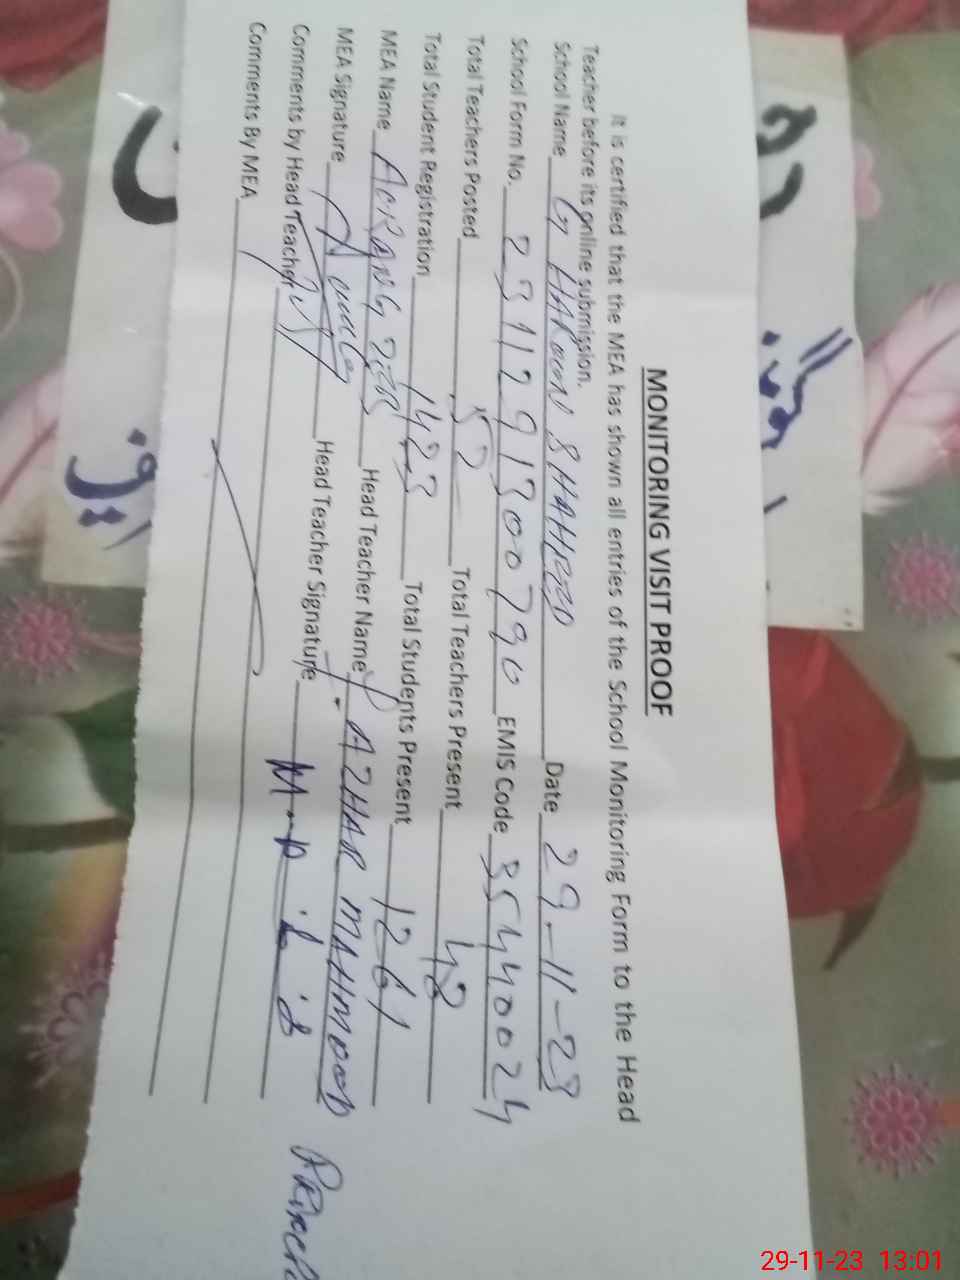 MONITORING VISIT PROOF
It is certified that the MEA has shown all entries of the School Monitoring Form to the Head
Teacher before its online submission.
School Name G HAROON SHAHEED Date 29-11-23
School Form No. 2311291300790 EMIS Code 35440024
Total Teachers Posted 52 Total Teachers Present 48
Total Student Registration 1423 Total Students Present 1261
MEA Name AURANG ZEB Head Teacher Name AZHAR MAHMOOD
MEA Signature Head Teacher Signature
Comments by Head Teacher
Comments By MEA
29-11-23 13:01